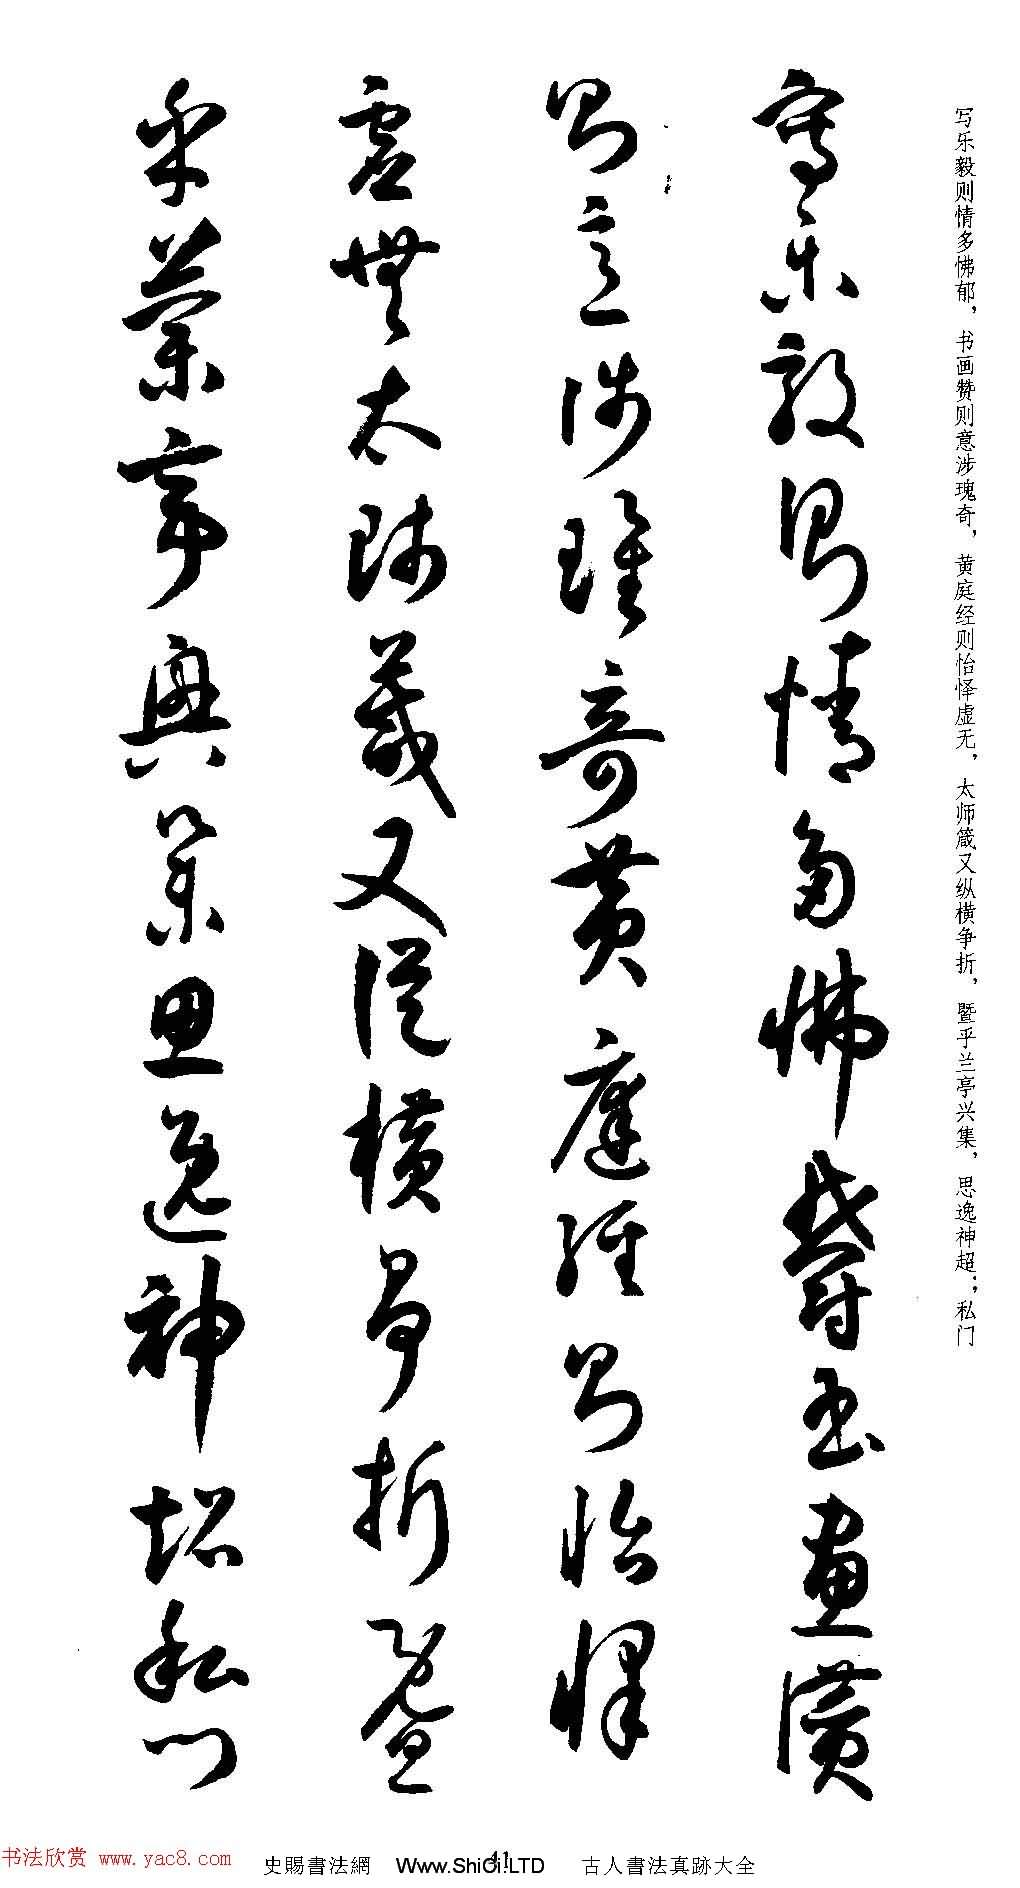 写乐毅则情多怫郁，书画赞则意涉瑰奇，黄庭经则怡怿虚无，太师箴又纵横争折，暨乎兰亭兴集，思逸神超；私门
寫樂毅則情多怫欝書畫讚
則意涉瓌奇黃庭經則怡懌
虛無太師箴又從橫爭折暨
乎蘭亭興集思逸神超私門
41
书法欣赏 www.yac8.com
史賜書法網 Www.ShiCi.LTD 古人書法真跡大全